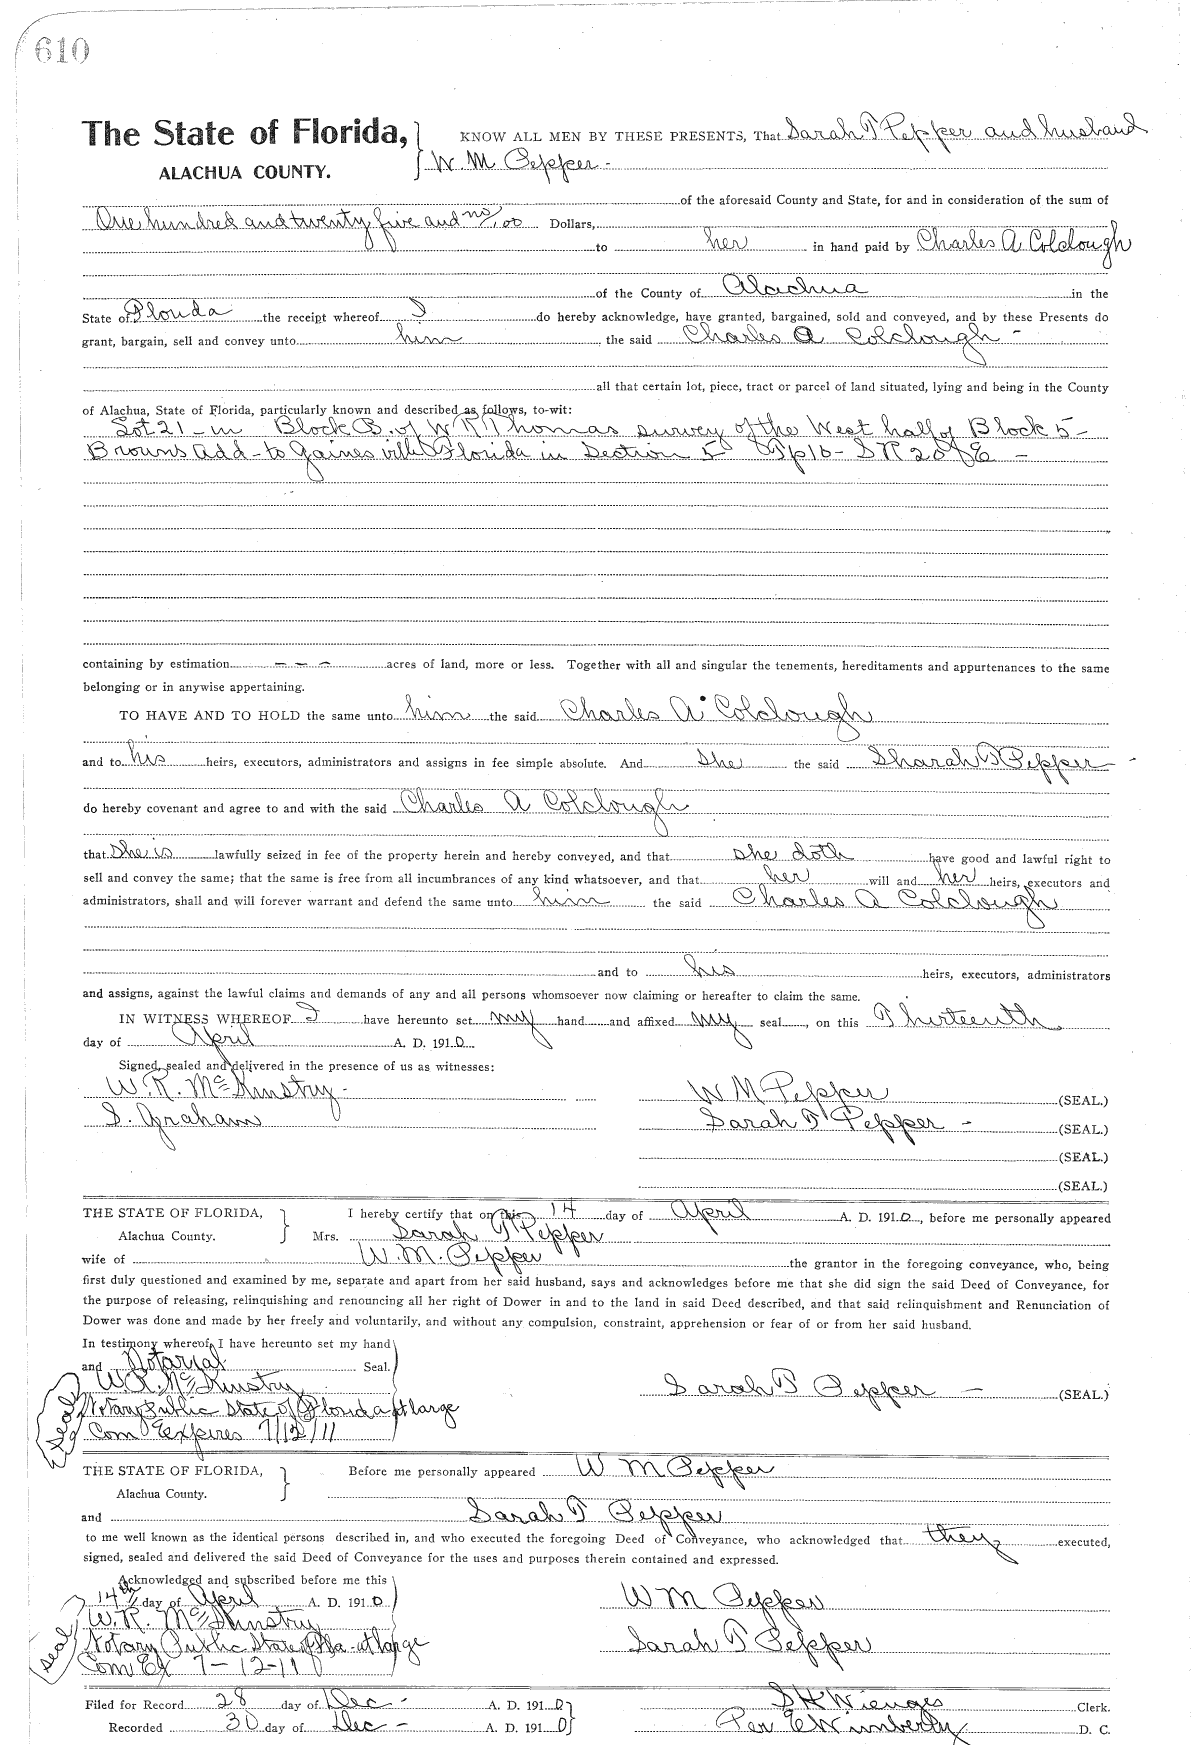 610
The State of Florida, KNOW ALL MEN BY THESE PRESENTS, That Sarah T Pepper and husband
ALACHUA COUNTY. W. M Pepper -
of the aforesaid County and State, for and in consideration of the sum of
One hundred and twenty five and no/100 Dollars,
to her in hand paid by Charles A Colclough
of the County of Alachua in the
State of Florida the receipt whereof I do hereby acknowledge, have granted, bargained, sold and conveyed, and by these Presents do
grant, bargain, sell and convey unto him the said Charles A Colclough -
all that certain lot, piece, tract or parcel of land situated, lying and being in the County
of Alachua, State of Florida, particularly known and described as follows, to-wit:
Lot 21 - in Block B. of W R Thomas survey of the West half of Block 5 -
Browns Add - to Gainesville Florida in Section 5 Tp 10 - S R 20 E -
containing by estimation - - - acres of land, more or less. Together with all and singular the tenements, hereditaments and appurtenances to the same
belonging or in anywise appertaining.
TO HAVE AND TO HOLD the same unto him the said Charles A Colclough
and to his heirs, executors, administrators and assigns in fee simple absolute. And she the said Sharah T Pepper
do hereby covenant and agree to and with the said Charles A Colclough
that she is lawfully seized in fee of the property herein and hereby conveyed, and that she doth have good and lawful right to
sell and convey the same; that the same is free from all incumbrances of any kind whatsoever, and that her will and her heirs, executors and
administrators, shall and will forever warrant and defend the same unto him the said Charles A Colclough
and to his heirs, executors, administrators
and assigns, against the lawful claims and demands of any and all persons whomsoever now claiming or hereafter to claim the same.
IN WITNESS WHEREOF I have hereunto set my hand and affixed my seal, on this Thirteenth
day of April A. D. 1910
Signed, sealed and delivered in the presence of us as witnesses:
W. R. McKinstry - W M Pepper (SEAL.)
S. Graham Sarah T Pepper - (SEAL.)
(SEAL.)
(SEAL.)
THE STATE OF FLORIDA, I hereby certify that on this 14 day of April A. D. 1910, before me personally appeared
Alachua County. Mrs. Sarah T Pepper
wife of W. M. Pepper the grantor in the foregoing conveyance, who, being
first duly questioned and examined by me, separate and apart from her said husband, says and acknowledges before me that she did sign the said Deed of Conveyance, for
the purpose of releasing, relinquishing and renouncing all her right of Dower in and to the land in said Deed described, and that said relinquishment and Renunciation of
Dower was done and made by her freely and voluntarily, and without any compulsion, constraint, apprehension or fear of or from her said husband.
In testimony whereof, I have hereunto set my hand
and Notarial Seal.
W R. McKinstry Sarah T Pepper - (SEAL.)
Seal Notary Public State of Florida at large
Com Expires 7/12/11
THE STATE OF FLORIDA, Before me personally appeared W M Pepper
Alachua County.
and Sarah T Pepper
to me well known as the identical persons described in, and who executed the foregoing Deed of Conveyance, who acknowledged that they executed,
signed, sealed and delivered the said Deed of Conveyance for the uses and purposes therein contained and expressed.
Acknowledged and subscribed before me this
14th day of April A. D. 1910 W M Pepper
W. R. McKinstry
Seal Notary Public State of Fla - at large Sarah T Pepper
Com Ex 7-12-11
Filed for Record 28 day of Dec - A. D. 1910 S H Wienges Clerk.
Recorded 30 day of Dec - A. D. 1910 Per E Wimberly D. C.